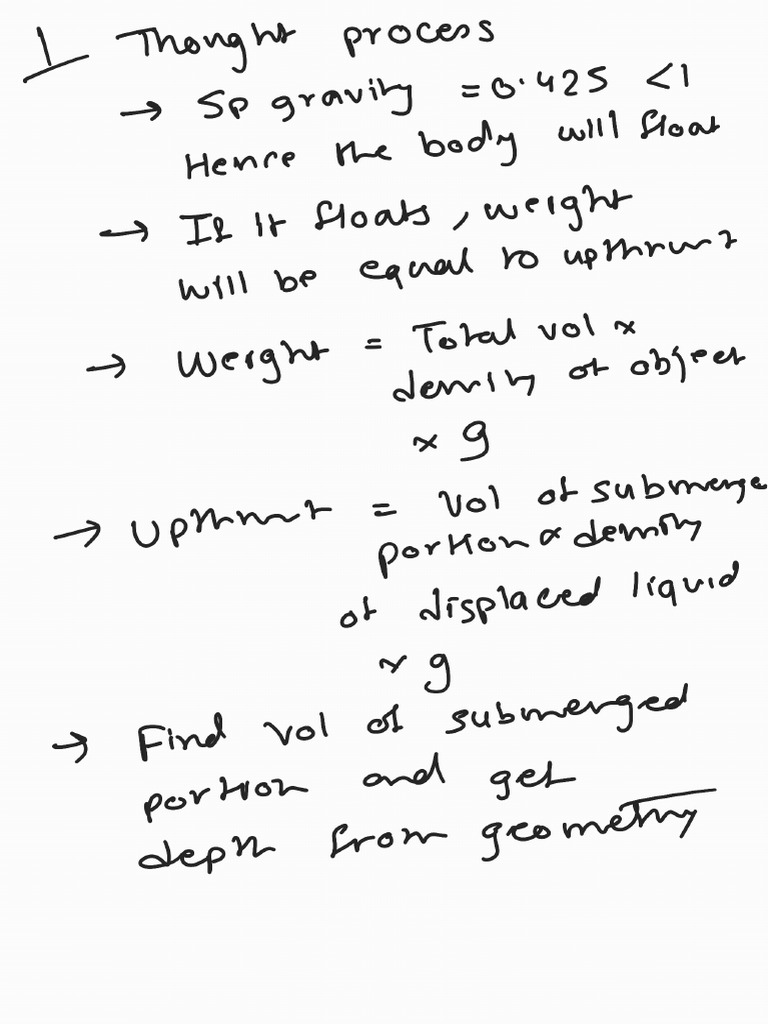 1 Thought process
→ Sp gravity = 0.425 < 1
Hence the body will float
→ If it floats, weight
will be equal to upthrust
→ Weight = Total vol ×
density of object
× g
→ Upthrust = Vol of submerge
portion × density
of displaced liquid
× g
→ Find vol of submerged
portion and get
depth from geometry